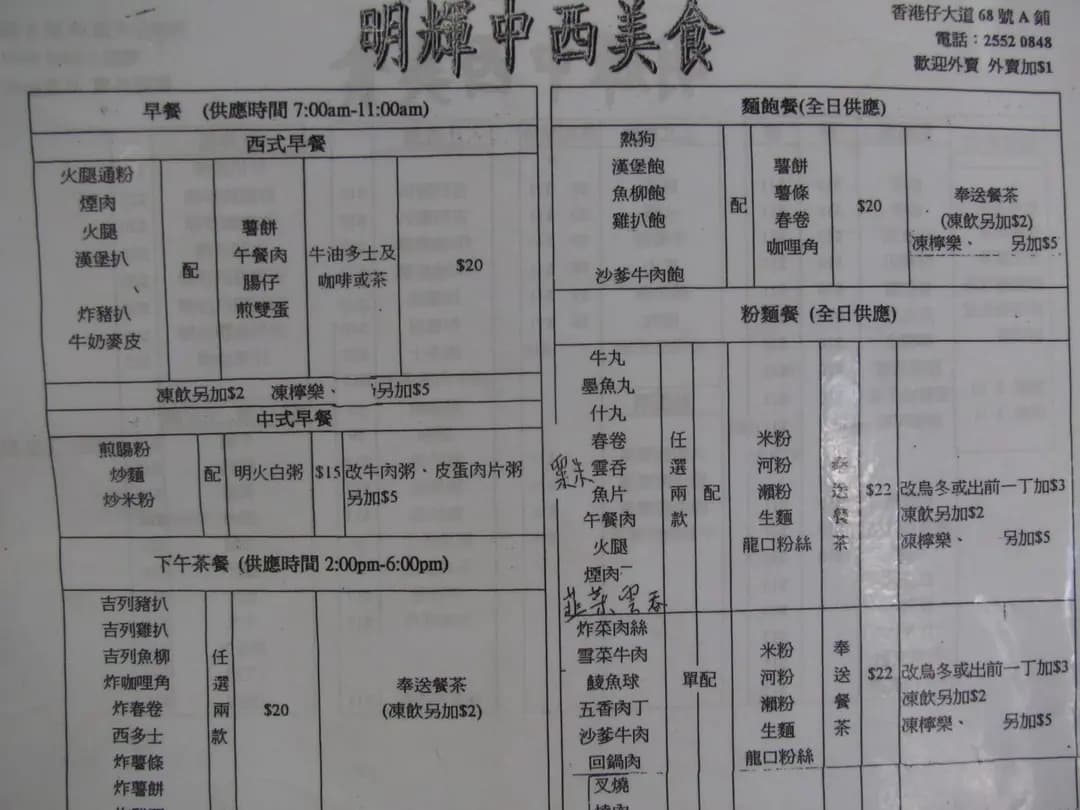 明輝中西美食
香港仔大道 68 號 A 鋪
電話：2552 0848
歡迎外賣 外賣加$1
早餐 (供應時間 7:00am-11:00am)
西式早餐
火腿通粉
煙肉
火腿
漢堡扒
炸豬扒
牛奶麥皮
配
薯餅
午餐肉
腸仔
煎雙蛋
牛油多士及
咖啡或茶
$20
凍飲另加$2 凍檸樂、 另加$5
中式早餐
煎腸粉
炒麵
炒米粉
配
明火白粥
$15
改牛肉粥、皮蛋肉片粥
另加$5
下午茶餐 (供應時間 2:00pm-6:00pm)
吉列豬扒
吉列雞扒
吉列魚柳
炸咖哩角
炸春卷
西多士
炸薯條
炸薯餅
任選兩款
$20
奉送餐茶
(凍飲另加$2)
麵飽餐(全日供應)
熱狗
漢堡飽
魚柳飽
雞扒飽
沙爹牛肉飽
配
薯餅
薯條
春卷
咖哩角
$20
奉送餐茶
(凍飲另加$2)
凍檸樂、 另加$5
粉麵餐 (全日供應)
牛丸
墨魚丸
什丸
春卷
雲吞
魚片
午餐肉
火腿
煙肉
韭菜雲吞
任選兩款
配
米粉
河粉
瀨粉
生麵
龍口粉絲
奉送餐茶
$22
改烏冬或出前一丁加$3
凍飲另加$2
凍檸樂、 另加$5
炸菜肉絲
雪菜牛肉
鯪魚球
五香肉丁
沙爹牛肉
回鍋肉
叉燒
單配
米粉
河粉
瀨粉
生麵
龍口粉絲
奉送餐茶
$22
改烏冬或出前一丁加$3
凍飲另加$2
凍檸樂、 另加$5